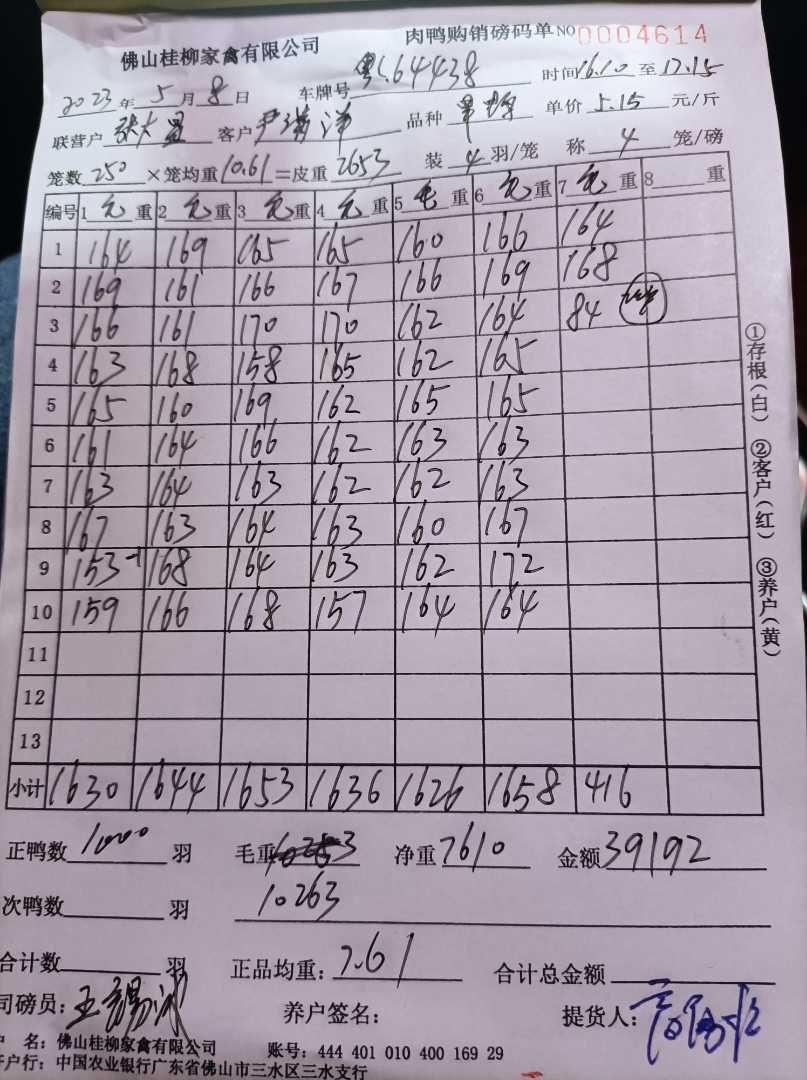 佛山桂柳家禽有限公司 肉鸭购销磅码单 NO 0004614
2023年5月8日 车牌号 64438 时间16.10至17.15
联营户 客户 品种 单价 5.15 元/斤
笼数 250 ×笼均重 10.61 =皮重 2653 装 4 羽/笼 称 4 笼/磅
编号 1 毛 重 2 毛 重 3 毛 重 4 毛 重 5 毛 重 6 毛 重 7 毛 重 8 重
1 164 169 165 165 160 166 164
2 169 161 166 167 166 169 168
3 166 161 170 170 162 164 84
4 163 168 158 165 162 165
5 165 160 169 162 165 165
6 161 164 166 162 163 163
7 163 164 163 162 162 163
8 167 163 164 163 160 167
9 153 168 164 163 162 172
10 159 166 168 157 164 164
11
12
13
小计 1630 1644 1653 1636 1626 1658 416
正鸭数 1000 羽 毛重 净重 7610 金额 39192
次鸭数 羽 10263
合计数 羽 正品均重: 7.61 合计总金额
司磅员: 养户签名: 提货人:
户 名: 佛山桂柳家禽有限公司 账号: 444 401 010 400 169 29
开户行: 中国农业银行广东省佛山市三水区三水支行
①存根(白) ②客户(红) ③养户(黄)